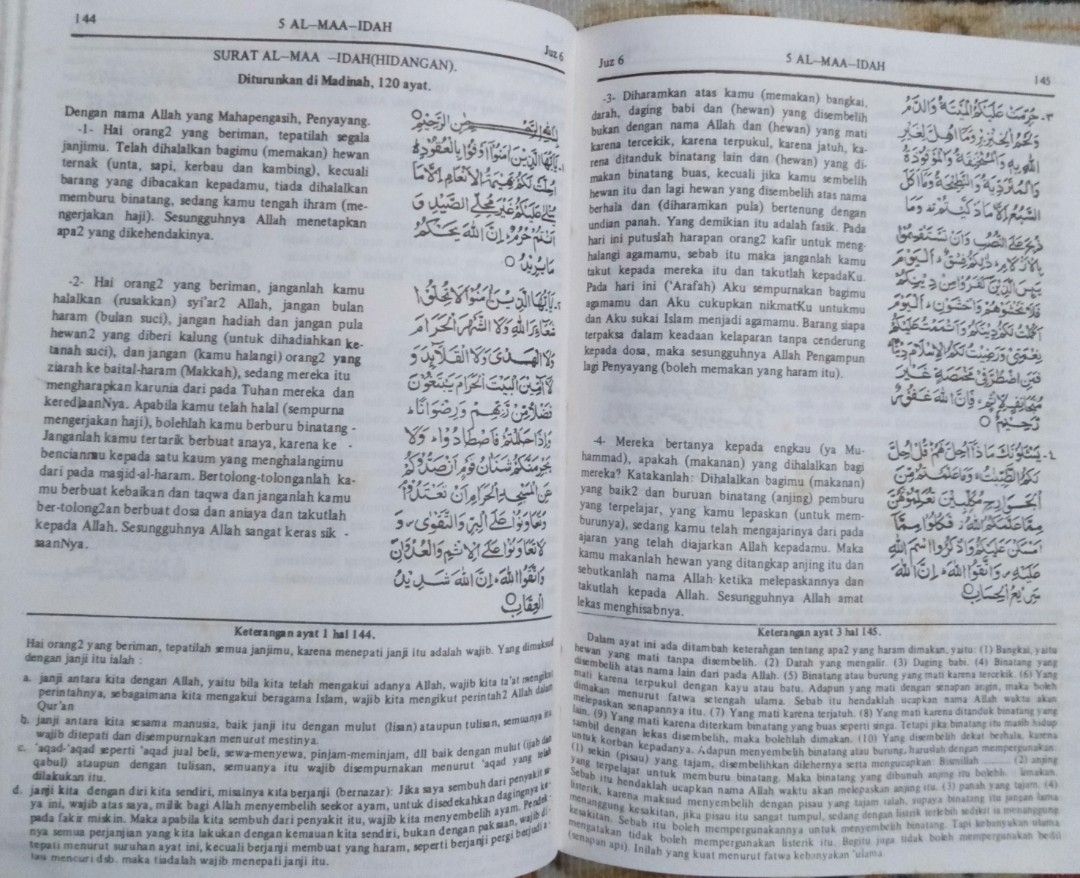 144
5 AL–MAA–IDAH
Juz 6
SURAT AL–MAA –IDAH(HIDANGAN).
Diturunkan di Madinah, 120 ayat.
Dengan nama Allah yang Mahapengasih, Penyayang.
-1- Hai orang2 yang beriman, tepatilah segala
janjimu. Telah dihalalkan bagimu (memakan) hewan
ternak (unta, sapi, kerbau dan kambing), kecuali
barang yang dibacakan kepadamu, tiada dihalalkan
memburu binatang, sedang kamu tengah ihram (me-
ngerjakan haji). Sesungguhnya Allah menetapkan
apa2 yang dikehendakinya.
يَاأَيُّهَا الَّذِينَ آمَنُوا أَوْفُوا بِالْعُقُودِ
أُحِلَّتْ لَكُمْ بَهِيمَةُ الْأَنْعَامِ إِلَّا مَا
يُتْلَى عَلَيْكُمْ غَيْرَ مُحِلِّي الصَّيْدِ وَ
أَنْتُمْ حُرُمٌ إِنَّ اللهَ يَحْكُمُ
مَا يُرِيدُ
-2- Hai orang2 yang beriman, janganlah kamu
halalkan (rusakkan) syi'ar2 Allah, jangan bulan
haram (bulan suci), jangan hadiah dan jangan pula
hewan2 yang diberi kalung (untuk dihadiahkan ke-
tanah suci), dan jangan (kamu halangi) orang2 yang
ziarah ke baital-haram (Makkah), sedang mereka itu
mengharapkan karunia dari pada Tuhan mereka dan
keredlaanNya. Apabila kamu telah halal (sempurna
mengerjakan haji), bolehlah kamu berburu binatang -
Janganlah kamu tertarik berbuat anaya, karena ke -
bencianmu kepada satu kaum yang menghalangimu
dari pada masjid-al-haram. Bertolong-tolonganlah ka-
mu berbuat kebaikan dan taqwa dan janganlah kamu
ber-tolong2an berbuat dosa dan aniaya dan takutlah
kepada Allah. Sesungguhnya Allah sangat keras sik -
saanNya.
يَاأَيُّهَا الَّذِينَ آمَنُوا لَا تُحِلُّوا
شَعَائِرَ اللهِ وَلَا الشَّهْرَ الْحَرَامَ
وَلَا الْهَدْيَ وَلَا الْقَلَائِدَ وَ
لَا آمِّينَ الْبَيْتَ الْحَرَامَ يَبْتَغُونَ
فَضْلًا مِنْ رَبِّهِمْ وَرِضْوَانًا
وَإِذَا حَلَلْتُمْ فَاصْطَادُوا وَلَا
يَجْرِمَنَّكُمْ شَنَآنُ قَوْمٍ أَنْ صَدُّوكُمْ
عَنِ الْمَسْجِدِ الْحَرَامِ أَنْ تَعْتَدُوا
وَتَعَاوَنُوا عَلَى الْبِرِّ وَالتَّقْوَى وَ
لَا تَعَاوَنُوا عَلَى الْإِثْمِ وَالْعُدْوَانِ
وَاتَّقُوا اللهَ إِنَّ اللهَ شَدِيدُ
الْعِقَابِ
Keterangan ayat 1 hal 144.
Hai orang2 yang beriman, tepatilah semua janjimu, karena menepati janji itu adalah wajib. Yang dimaksud
dengan janji itu ialah :
a. janji antara kita dengan Allah, yaitu bila kita telah mengakui adanya Allah, wajib kita ta'at mengikut
perintahnya, sebagaimana kita mengakui beragama Islam, wajib kita mengikut perintah2 Allah dalam
Qur'an
b. janji antara kita sesama manusia, baik janji itu dengan mulut (lisan) ataupun tulisan, semuanya itu
wajib ditepati dan disempurnakan menurut mestinya.
c. 'aqad-'aqad seperti 'aqad jual beli, sewa-menyewa, pinjam-meminjam, dll baik dengan mulut (ijab dan
qabul) ataupun dengan tulisan, semuanya itu wajib disempurnakan menurut 'aqad yang telah
dilakukan itu.
d. janji kita dengan diri kita sendiri, misalnya kita berjanji (bernazar): Jika saya sembuh dari penyakit sa-
ya ini, wajib atas saya, milik bagi Allah menyembelih seekor ayam, untuk disedekahkan dagingnya ke-
pada fakir miskin. Maka apabila kita sembuh dari penyakit itu, wajib kita menyembelih ayam. Pendek-
nya semua perjanjian yang kita lakukan dengan kemauan kita sendiri, bukan dengan paksaan, wajib di-
tepati menurut suruhan ayat ini, kecuali berjanji membuat yang haram, seperti berjanji pergi berjudi a-
tau mencuri dsb. maka tiadalah wajib menepati janji itu.
Juz 6
5 AL–MAA–IDAH
145
-3- Diharamkan atas kamu (memakan) bangkai,
darah, daging babi dan (hewan) yang disembelih
bukan dengan nama Allah dan (hewan) yang mati
karena tercekik, karena terpukul, karena jatuh, ka-
rena ditanduk binatang lain dan (hewan) yang di-
makan binatang buas, kecuali jika kamu sembelih
hewan itu dan lagi hewan yang disembelih atas nama
berhala dan (diharamkan pula) bertenung dengan
undian panah. Yang demikian itu adalah fasik. Pada
hari ini putuslah harapan orang2 kafir untuk meng-
halangi agamamu, sebab itu maka janganlah kamu
takut kepada mereka itu dan takutlah kepadaKu.
Pada hari ini ('Arafah) Aku sempurnakan bagimu
agamamu dan Aku cukupkan nikmatKu untukmu
dan Aku sukai Islam menjadi agamamu. Barang siapa
terpaksa dalam keadaan kelaparan tanpa cenderung
kepada dosa, maka sesungguhnya Allah Pengampun
lagi Penyayang (boleh memakan yang haram itu).
٣- حُرِّمَتْ عَلَيْكُمُ الْمَيْتَةُ وَالدَّمُ
وَلَحْمُ الْخِنْزِيرِ وَمَا أُهِلَّ لِغَيْرِ
اللهِ بِهِ وَالْمُنْخَنِقَةُ وَالْمَوْقُوذَةُ
وَالْمُتَرَدِّيَةُ وَالنَّطِيحَةُ وَمَا أَكَلَ
السَّبُعُ إِلَّا مَا ذَكَّيْتُمْ وَمَا
ذُبِحَ عَلَى النُّصُبِ وَأَنْ تَسْتَقْسِمُوا
بِالْأَزْلَامِ ذَلِكُمْ فِسْقٌ الْيَوْمَ
يَئِسَ الَّذِينَ كَفَرُوا مِنْ دِينِكُمْ
فَلَا تَخْشَوْهُمْ وَاخْشَوْنِ الْيَوْمَ
أَكْمَلْتُ لَكُمْ دِينَكُمْ وَأَتْمَمْتُ عَلَيْكُمْ
نِعْمَتِي وَرَضِيتُ لَكُمُ الْإِسْلَامَ دِينًا
فَمَنِ اضْطُرَّ فِي مَخْمَصَةٍ غَيْرَ
مُتَجَانِفٍ لِإِثْمٍ فَإِنَّ اللهَ غَفُورٌ
رَحِيمٌ
-4- Mereka bertanya kepada engkau (ya Mu-
hammad), apakah (makanan) yang dihalalkan bagi
mereka? Katakanlah: Dihalalkan bagimu (makanan)
yang baik2 dan buruan binatang (anjing) pemburu
yang terpelajar, yang kamu lepaskan (untuk mem-
burunya), sedang kamu telah mengajarinya dari pada
ajaran yang telah diajarkan Allah kepadamu. Maka
kamu makanlah hewan yang ditangkap anjing itu dan
sebutkanlah nama Allah ketika melepaskannya dan
takutlah kepada Allah. Sesungguhnya Allah amat
lekas menghisabnya.
٤- يَسْئَلُونَكَ مَاذَا أُحِلَّ لَهُمْ قُلْ أُحِلَّ
لَكُمُ الطَّيِّبَاتُ وَمَا عَلَّمْتُمْ مِنَ
الْجَوَارِحِ مُكَلِّبِينَ تُعَلِّمُونَهُنَّ
مِمَّا عَلَّمَكُمُ اللهُ فَكُلُوا مِمَّا
أَمْسَكْنَ عَلَيْكُمْ وَاذْكُرُوا اسْمَ اللهِ
عَلَيْهِ وَاتَّقُوا اللهَ إِنَّ اللهَ
سَرِيعُ الْحِسَابِ
Keterangan ayat 3 hal 145.
Dalam ayat ini ada ditambah keterangan tentang apa2 yang haram dimakan, yaitu: (1) Bangkai, yaitu
hewan yang mati tanpa disembelih. (2) Darah yang mengalir. (3) Daging babi. (4) Binatang yang
disembelih atas nama lain dari pada Allah. (5) Binatang atau burung yang mati karena tercekik. (6) Yang
mati karena terpukul dengan kayu atau batu. Adapun yang mati dengan senapan angin, maka boleh
dimakan menurut fatwa setengah ulama. Sebab itu hendaklah ucapkan nama Allah waktu akan
melepaskan senapannya itu. (7) Yang mati karena terjatuh. (8) Yang mati karena ditanduk binatang yang
lain. (9) Yang mati karena diterkam binatang yang buas seperti singa. Tetapi jika binatang itu masih hidup
dengan lekas disembelih, maka bolehlah dimakan. (10) Yang disembelih dekat berhala, karena
untuk korban kepadanya. Adapun menyembelih binatang atau burung, haruslah dengan mempergunakan
(1) sekin (pisau) yang tajam, disembelihkan dilehernya serta mengucapkan: Bismillah ........ (2) anjing
yang terpelajar untuk memburu binatang. Maka binatang yang dibunuh anjing itu boleh dimakan.
Sebab itu hendaklah ucapkan nama Allah waktu akan melepaskan anjing itu. (3) panah yang tajam. (4)
listerik, karena maksud menyembelih dengan pisau yang tajam ialah, supaya binatang itu jangan lama
menanggung kesakitan, jika pisau itu sangat tumpul, sedang dengan listerik terlebih sedikit ia menanggung
kesakitan. Sebab itu boleh mempergunakannya untuk menyembelih binatang. Tapi kebanyakan ulama
mengatakan tidak boleh mempergunakan listerik itu. Begitu juga tidak boleh mempergunakan bedil
(senapan api). Inilah yang kuat menurut fatwa kebanyakan 'ulama.